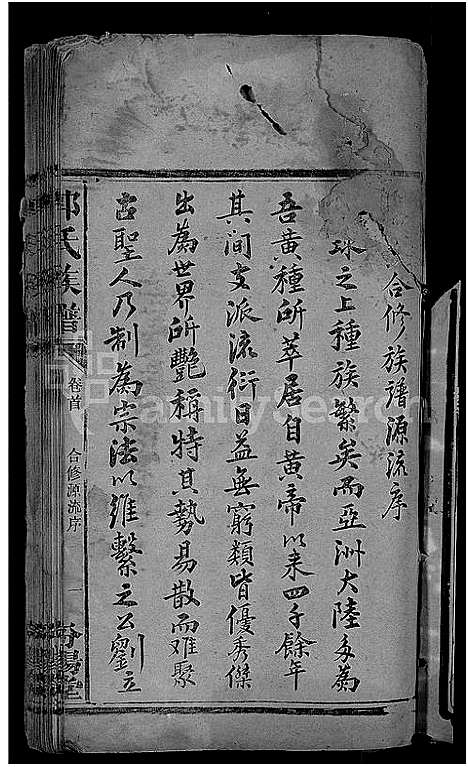 合修族譜源流序
球之上種族繁矣而亞洲大陸多為
吾黄種所萃居自黄帝以来四千餘年
其間支派流衍日益無窮類皆優秀傑
出為世界所艷稱特其勢易散而难聚
古聖人乃制為宗法以維繫之公劉立
氏族譜
卷首
合修源流序
一
堂
FamilySearch